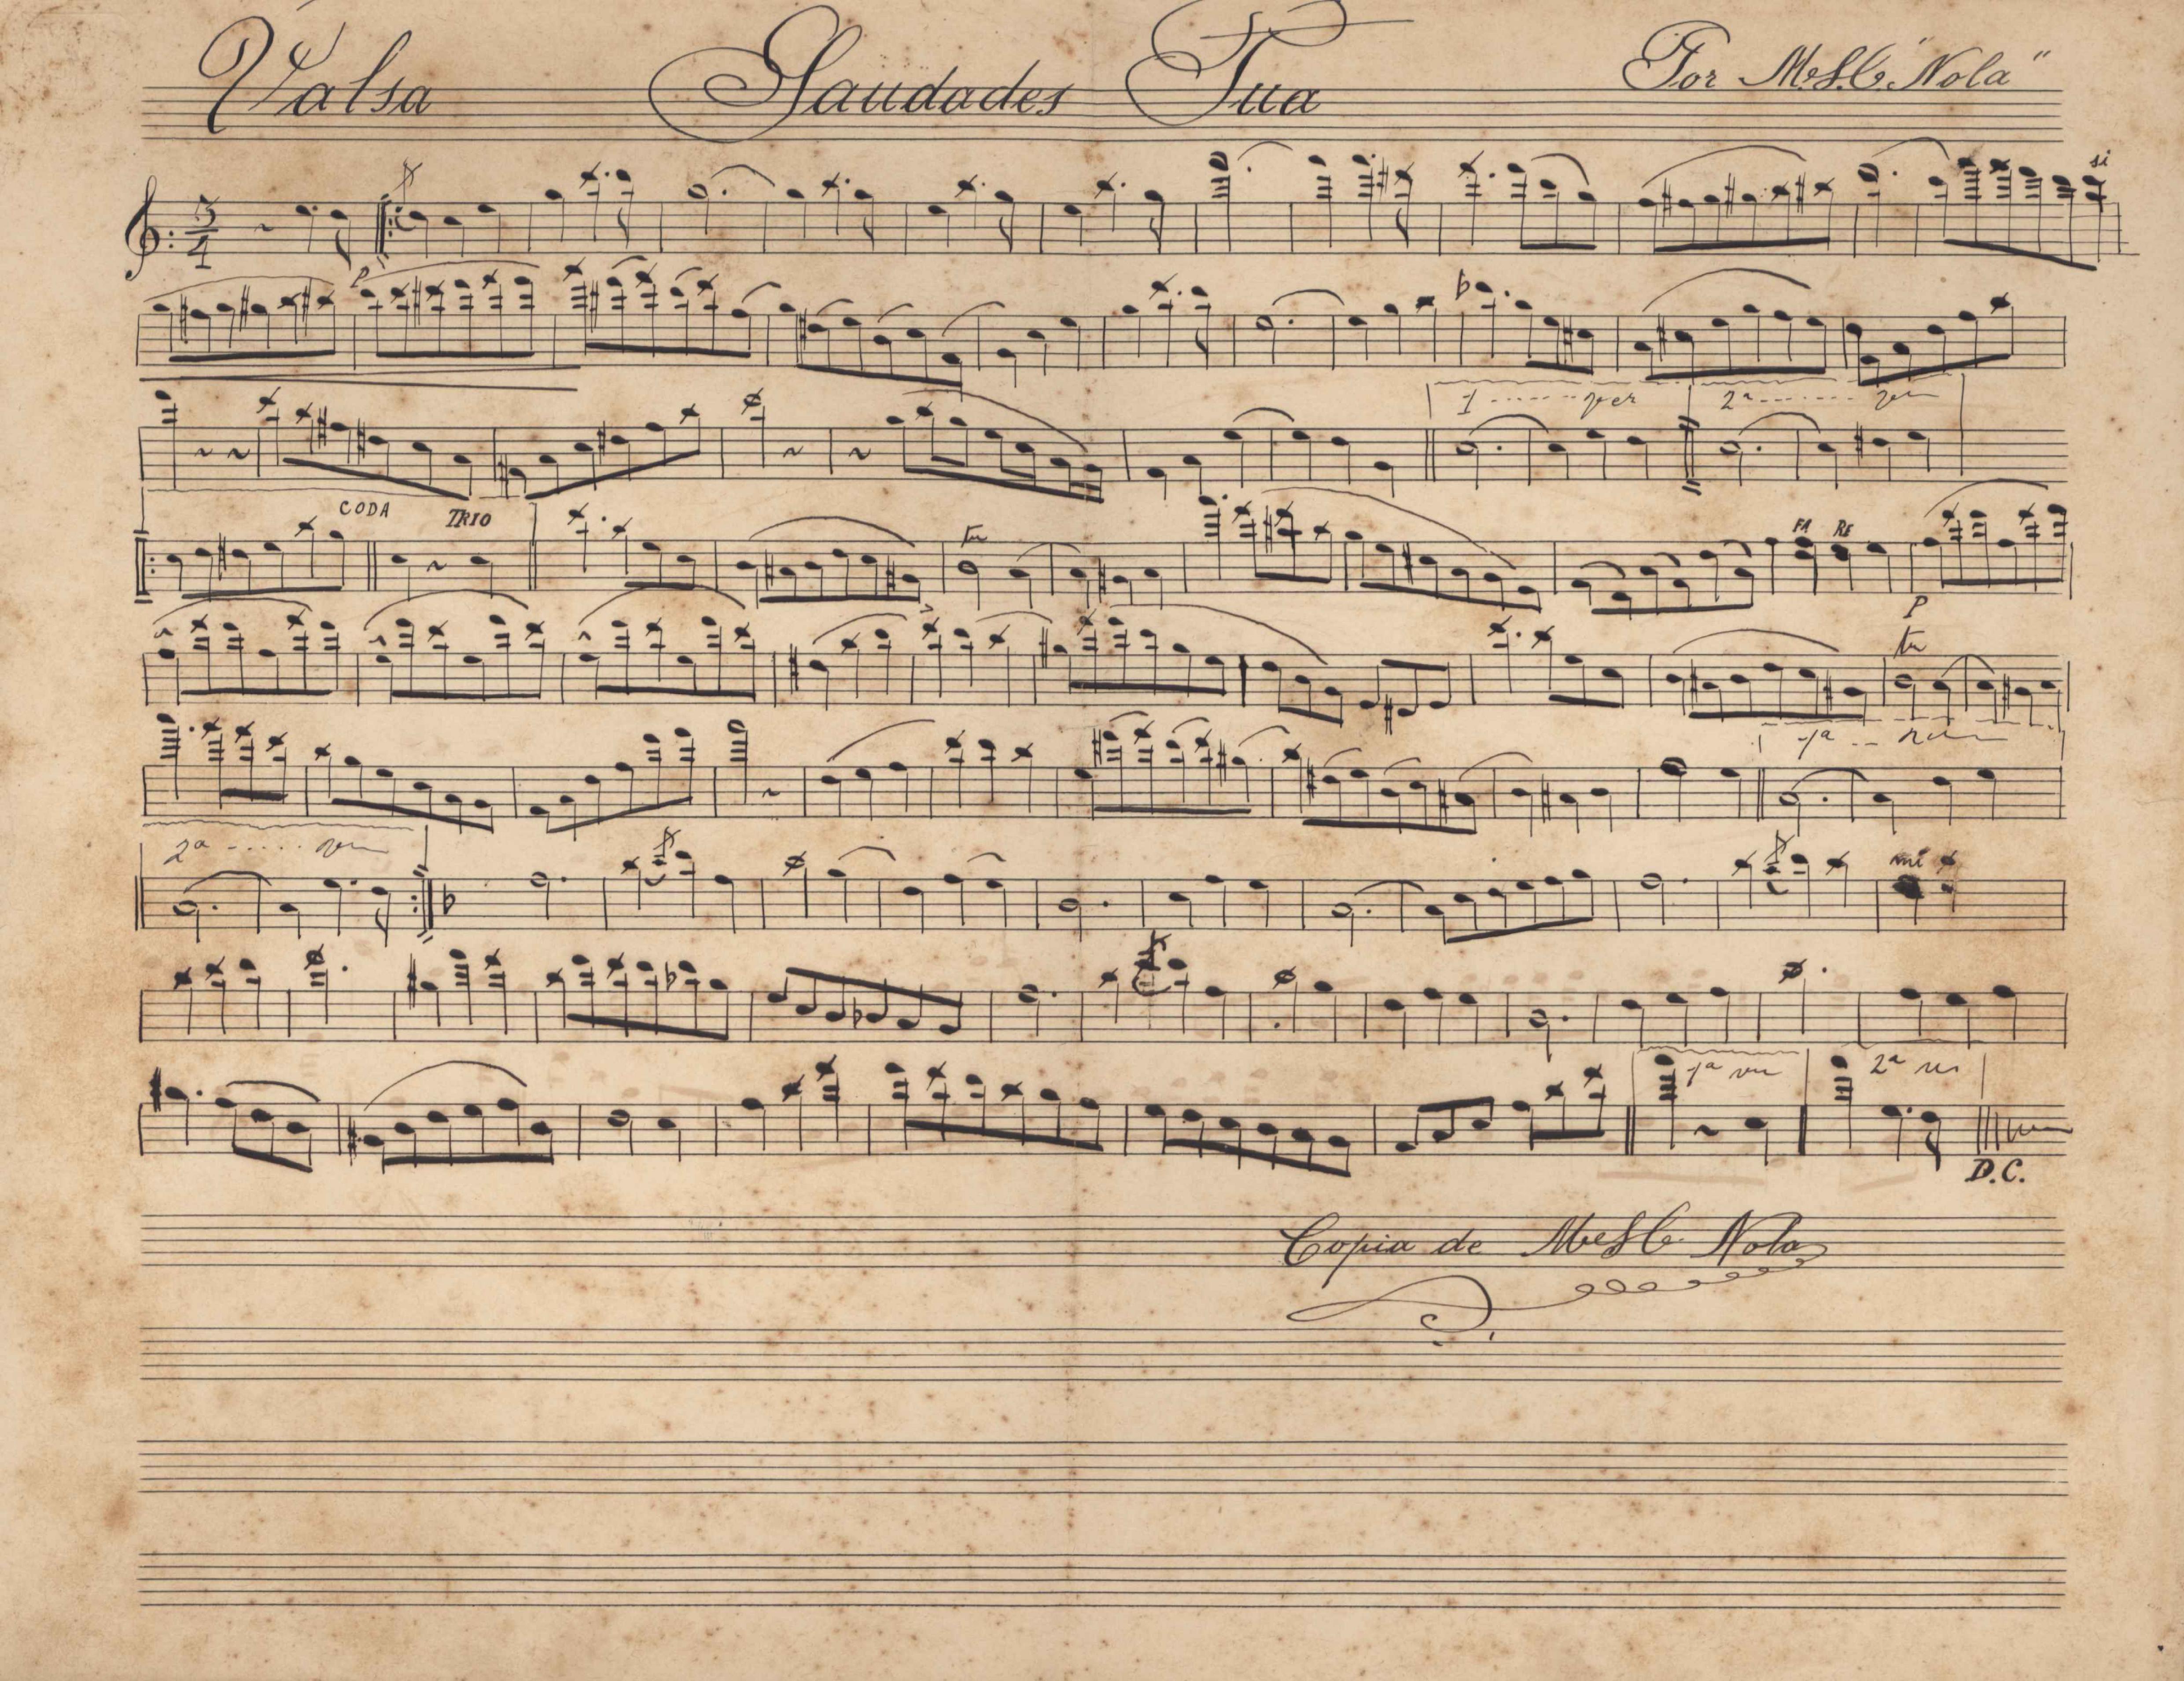 Valsa Saudades Tua Por M.S.C. "Nola"
3/4
si
P
1 ------ vez 2ª ------ vez
CODA TRIO tr FA RE
P
tr
1ª -- vez
2ª ----- vez
mi
1ª vez 2ª vez
D.C.
Copia de Nola